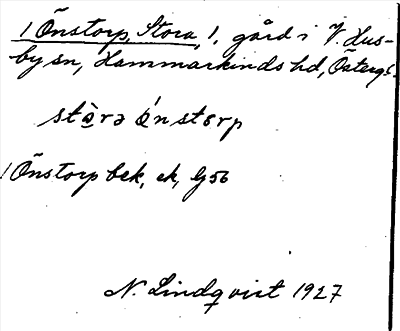 1 Önstorp, Stora, 1, gård i V. Hus-
by sn, Hammarkinds hd, Östergl.
stòrə ǿnstorp
1 Önstorp bek, ek, G56
N. Lindqvist 1927